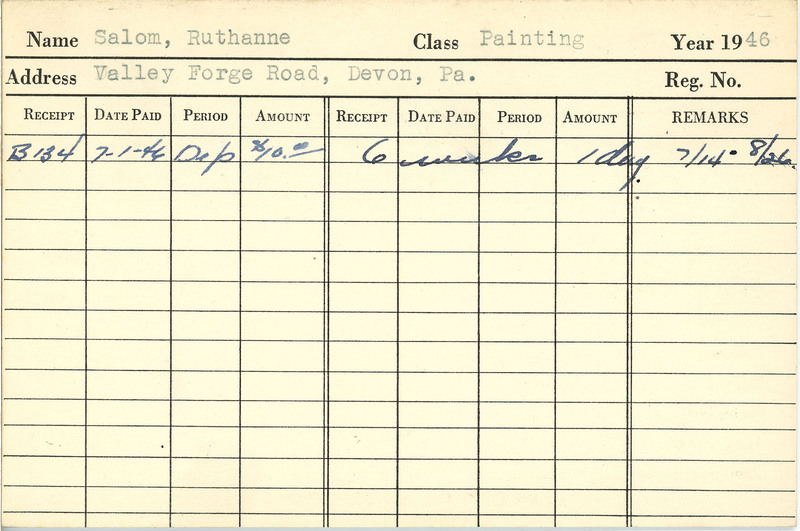 Name Salom, Ruthanne Class Painting Year 1946
Address Valley Forge Road, Devon, Pa. Reg. No.
RECEIPT DATE PAID PERIOD AMOUNT RECEIPT DATE PAID PERIOD AMOUNT REMARKS
B134 7-1-46 Dep $10.00 6 weeks 1 day 7/14- 8/26.